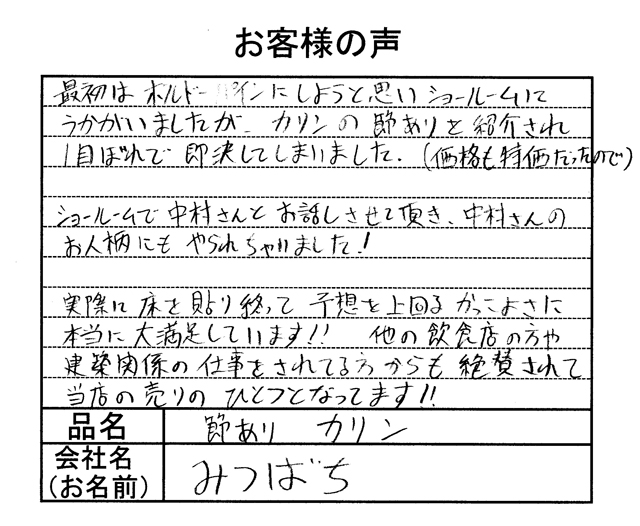 お客様の声
最初は ボルドーパインにしようと思い ショールームにて
うかがいましたが、カリンの節ありを紹介され
1目ぼれで即決してしまいました.（価格も特価だったので）
ショールームで中村さんとお話しさせて頂き、中村さんの
お人柄にもやられちゃいました!
実際に床を貼り終って予想を上回るかっこよさに
本当に大満足しています!! 他の飲食店の方や
建築関係の仕事をされてる方からも絶賛されて
当店の売りのひとつとなってます!!
品名 節あり カリン
会社名
(お名前) みつばち